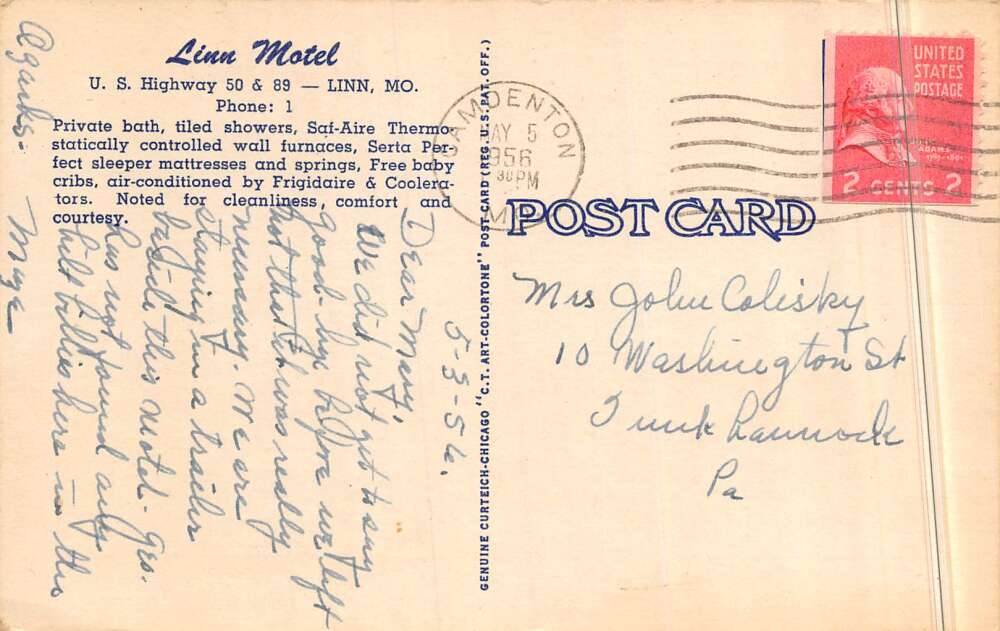 Linn Motel
U. S. Highway 50 & 89 — LINN, MO.
Phone: 1
Private bath, tiled showers, Saf-Aire Thermo-
statically controlled wall furnaces, Serta Per-
fect sleeper mattresses and springs, Free baby
cribs, air-conditioned by Frigidaire & Coolera-
tors. Noted for cleanliness, comfort and
courtesy.
5-3-56.
Dear Mary,
We did not get to say
good-bye before we left
but that it was really
necessary. We are
staying in a trailer
beside this motel - Geo.
has not found any
hill billies here in this
Ozarks -
Mya
GENUINE CURTEICH-CHICAGO "C.T. ART-COLORTONE" POST CARD (REG. U.S. PAT. OFF.)
CAMDENTON
MAY 5
1956
PM
MO.
UNITED
STATES
POSTAGE
ADAMS
2 CENTS 2
POST CARD
Mrs John Colisky
10 Washington St
Tunkhannock
Pa